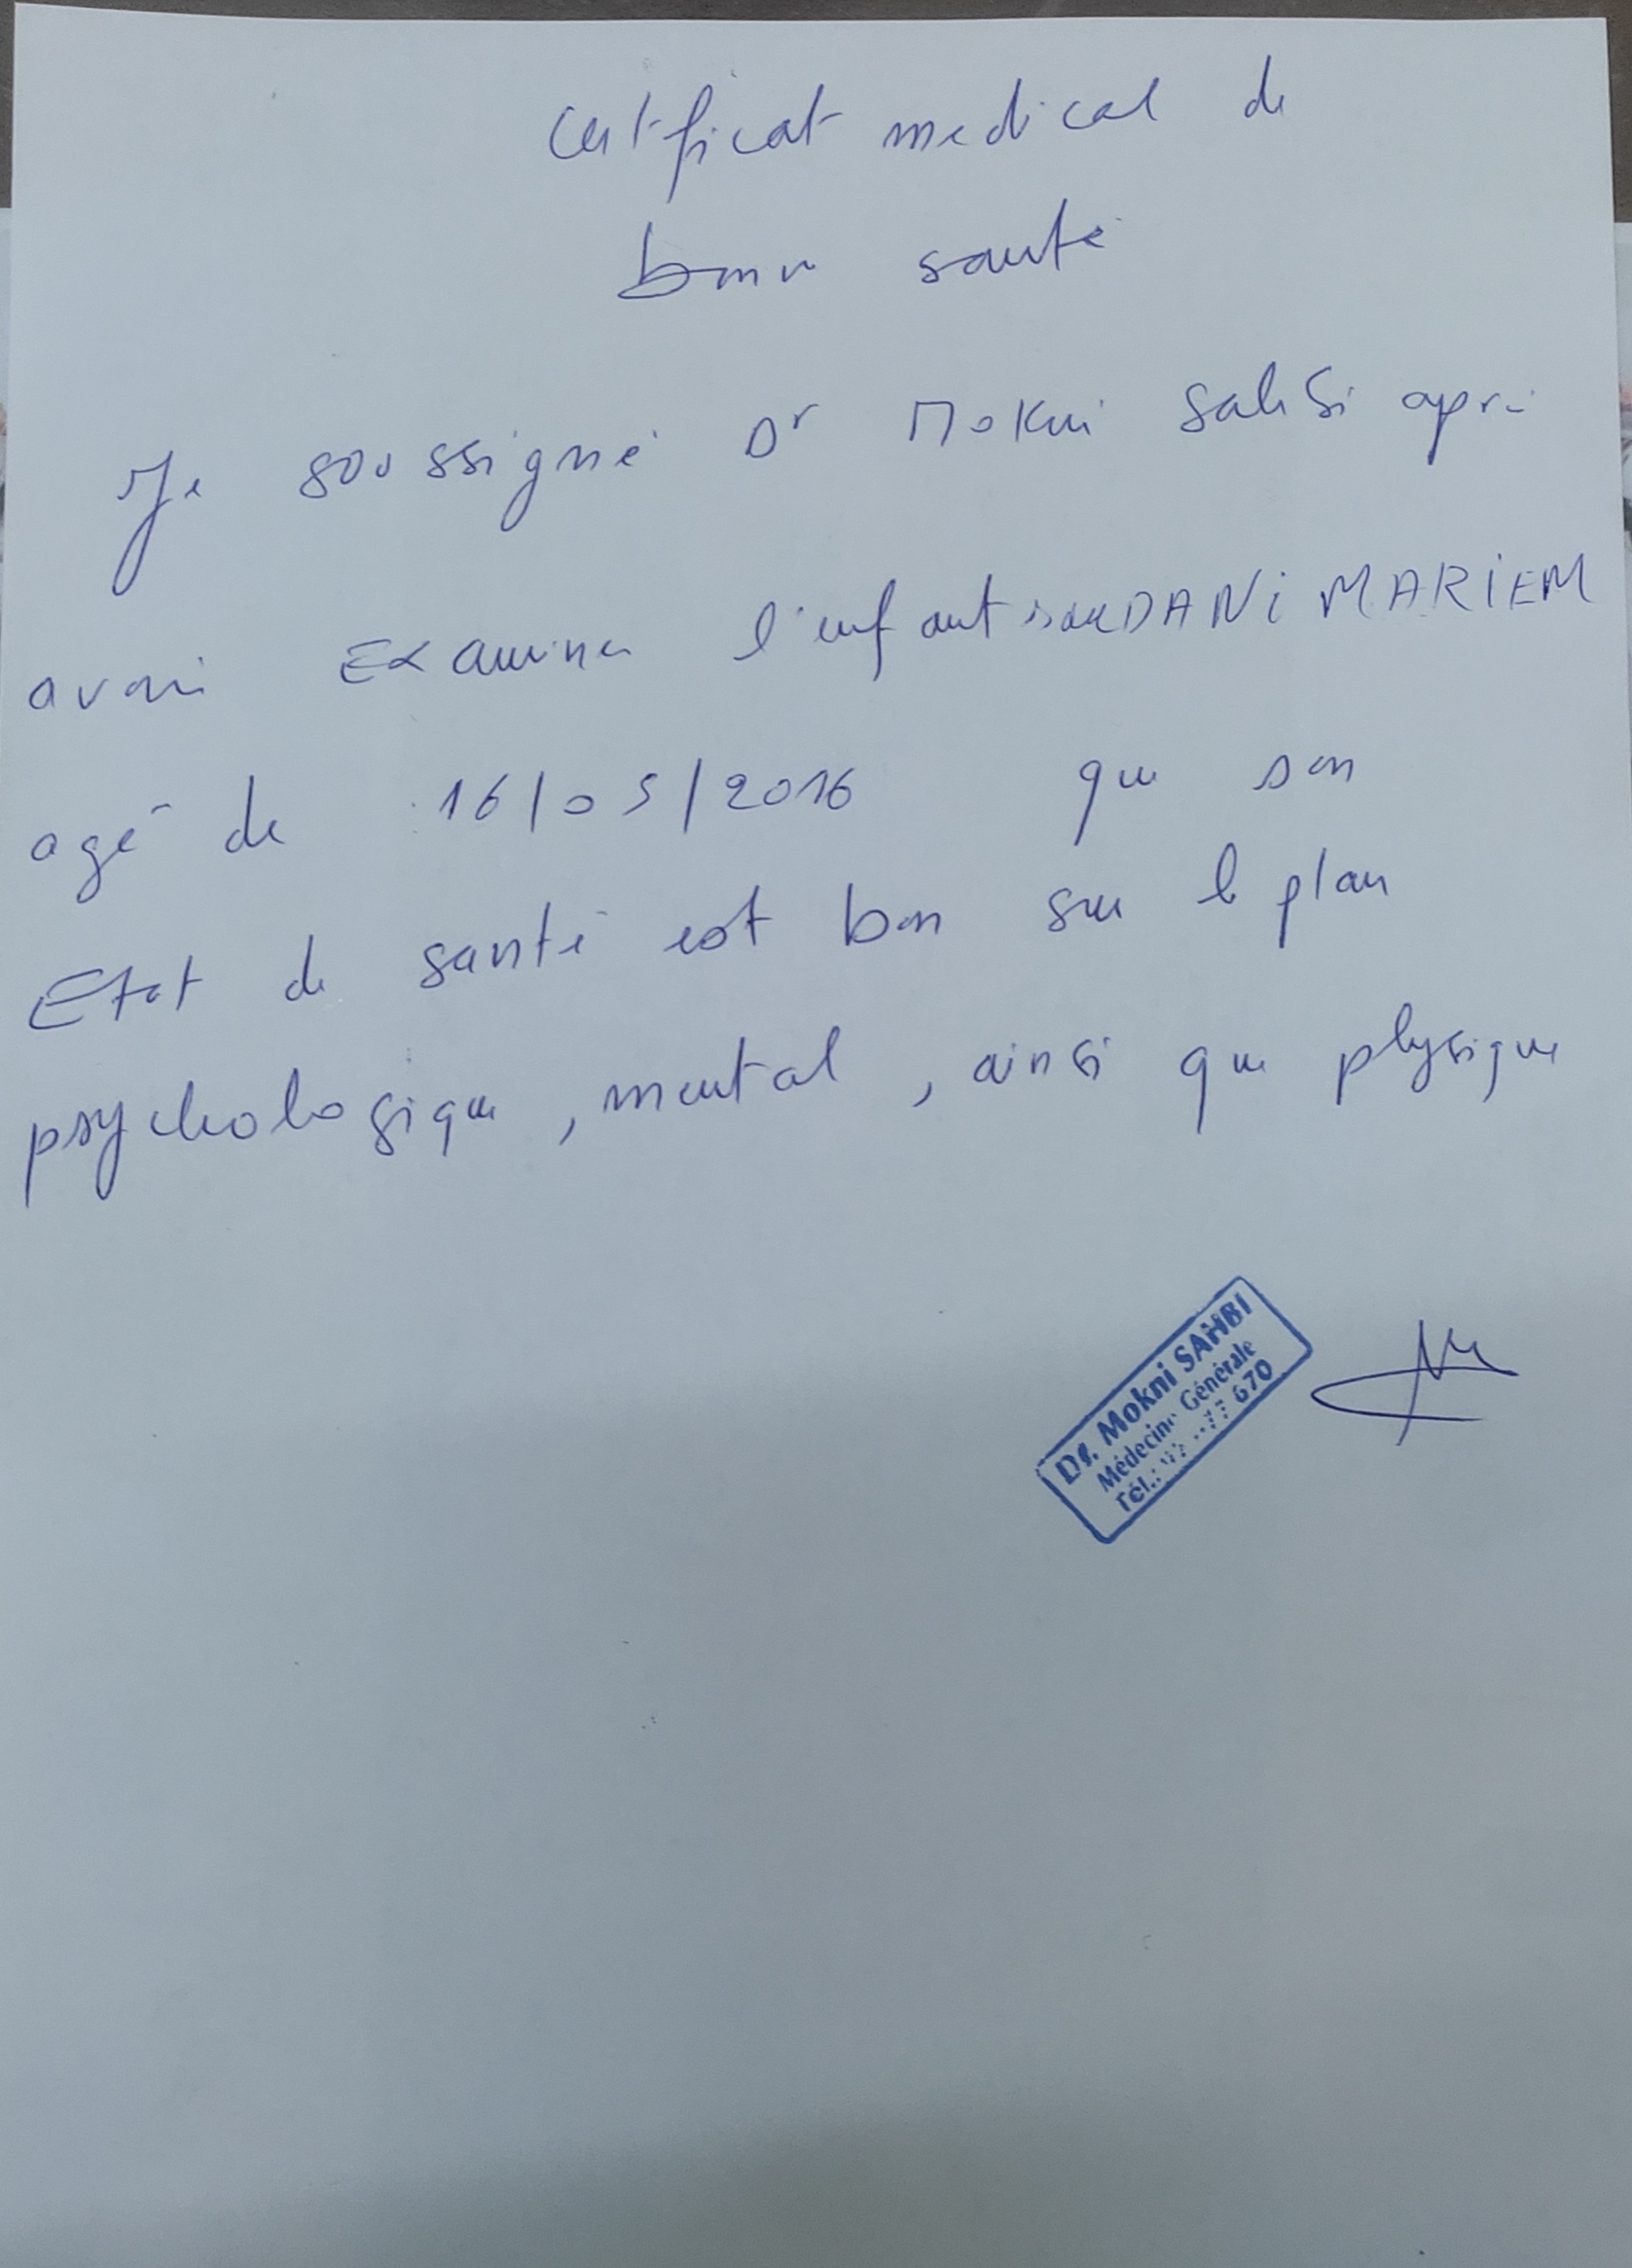 Certificat medical de
bonne santé
Je soussigné Dr Mokni Sahbi après
avoir Examiner l'enfant SOUDANI MARIEM
agé de 16/05/2016 que son
Etat de santé est bon sur le plan
psychologique, mental, ainsi que physique
Dr. Mokni SAHBI
Médecine Générale
Tél.: 77 670